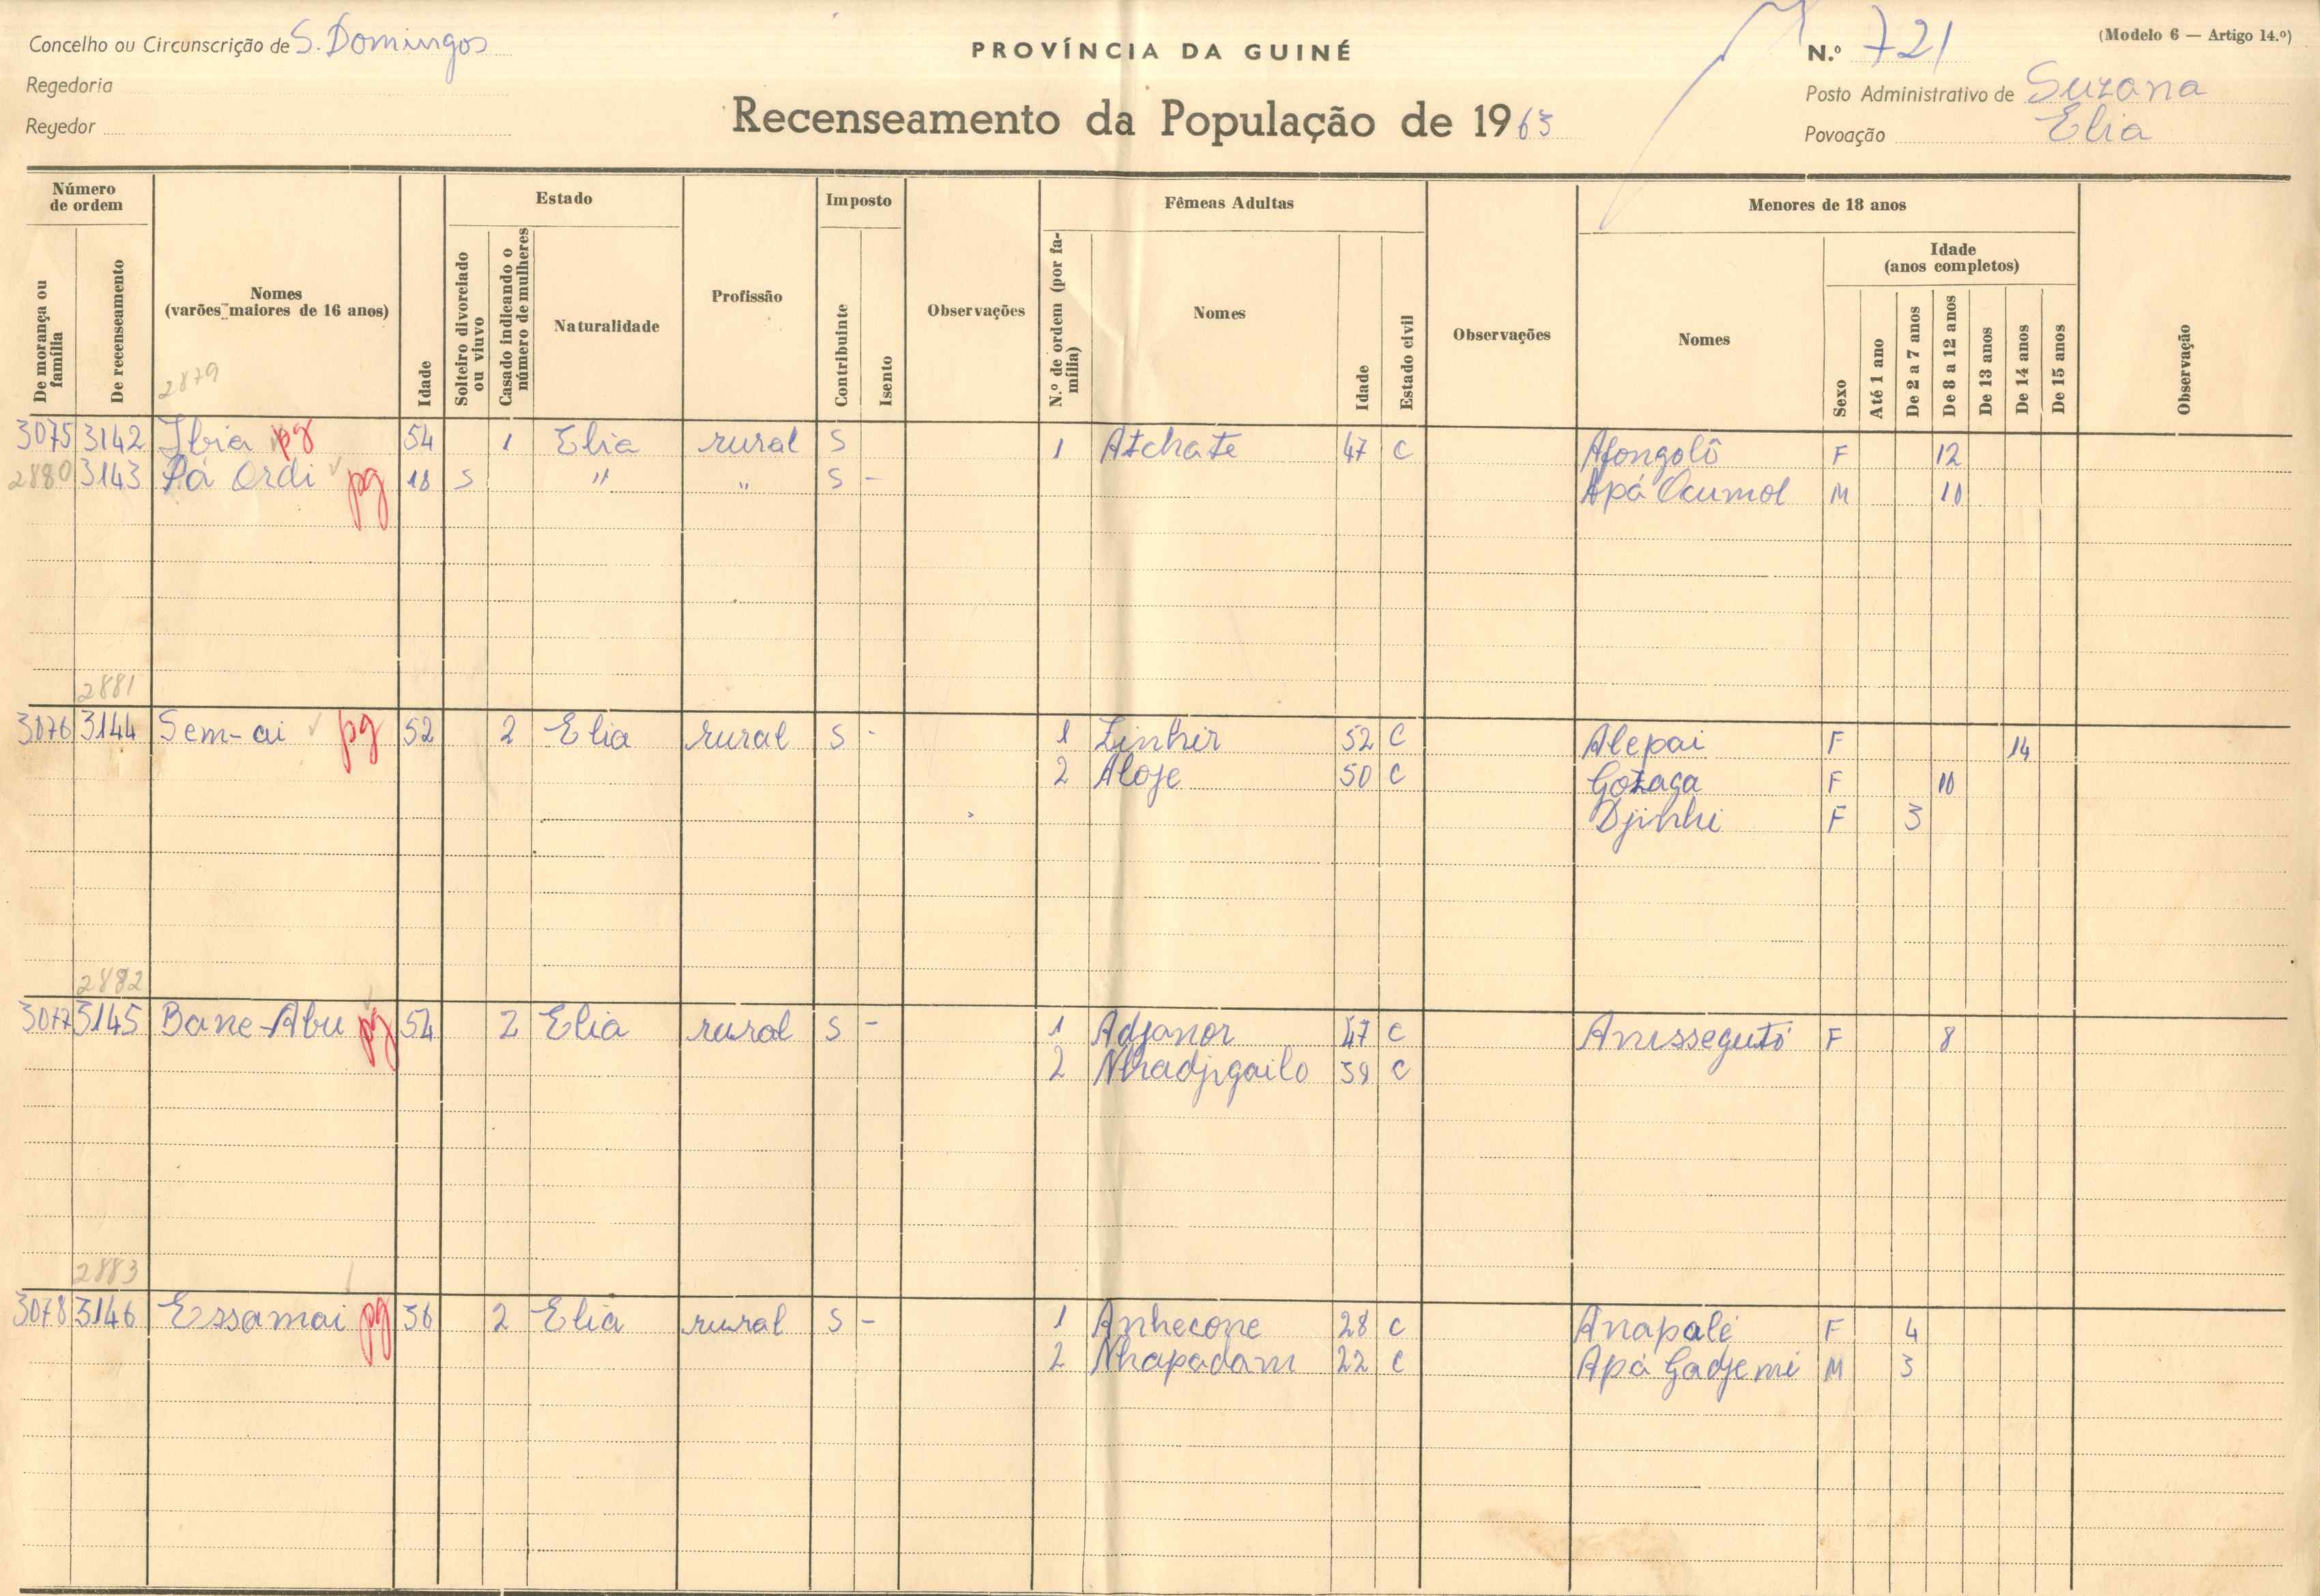 Concelho ou Circunscrição de S. Domingos
Regedoria
Regedor
PROVÍNCIA DA GUINÉ
Recenseamento da População de 1963
(Modelo 6 — Artigo 14.º)
N.º 721
Posto Administrativo de Suzana
Povoação Elia
Número de ordem
De morança ou família
De recenseamento
Nomes
(varões maiores de 16 anos)
2879
Idade
Estado
Solteiro divorciado ou viuvo
Casado indicando o número de mulheres
Naturalidade
Profissão
Imposto
Contribuinte
Isento
Observações
Fêmeas Adultas
N.º de ordem (por família)
Nomes
Idade
Estado civil
Observações
Menores de 18 anos
Nomes
Sexo
Idade
(anos completos)
Até 1 ano
De 2 a 7 anos
De 8 a 12 anos
De 13 anos
De 14 anos
De 15 anos
Observação
3075 3142 Ibia pg 54 1 Elia rural S 1 Atchate 47 C Afongolô F 12
2880 3143 Pá Ordi pg 18 S " " S - Apá Ocumol M 10
2881
3076 3144 Sem-ai pg 52 2 Elia rural S - 1 Linhir 52 C Alepai F 14
2 Aloje 50 C Gozaga F 10
Djinhi F 3
2882
3077 3145 Bane-Abu pg 54 2 Elia rural S - 1 Adjanor 47 C Anissegutó F 8
2 Nhadjigailo 39 C
2883
3078 3146 Essamai pg 36 2 Elia rural S - 1 Anhecone 28 C Anapalé F 4
2 Nhapadam 22 C Apá Gadjemi M 3